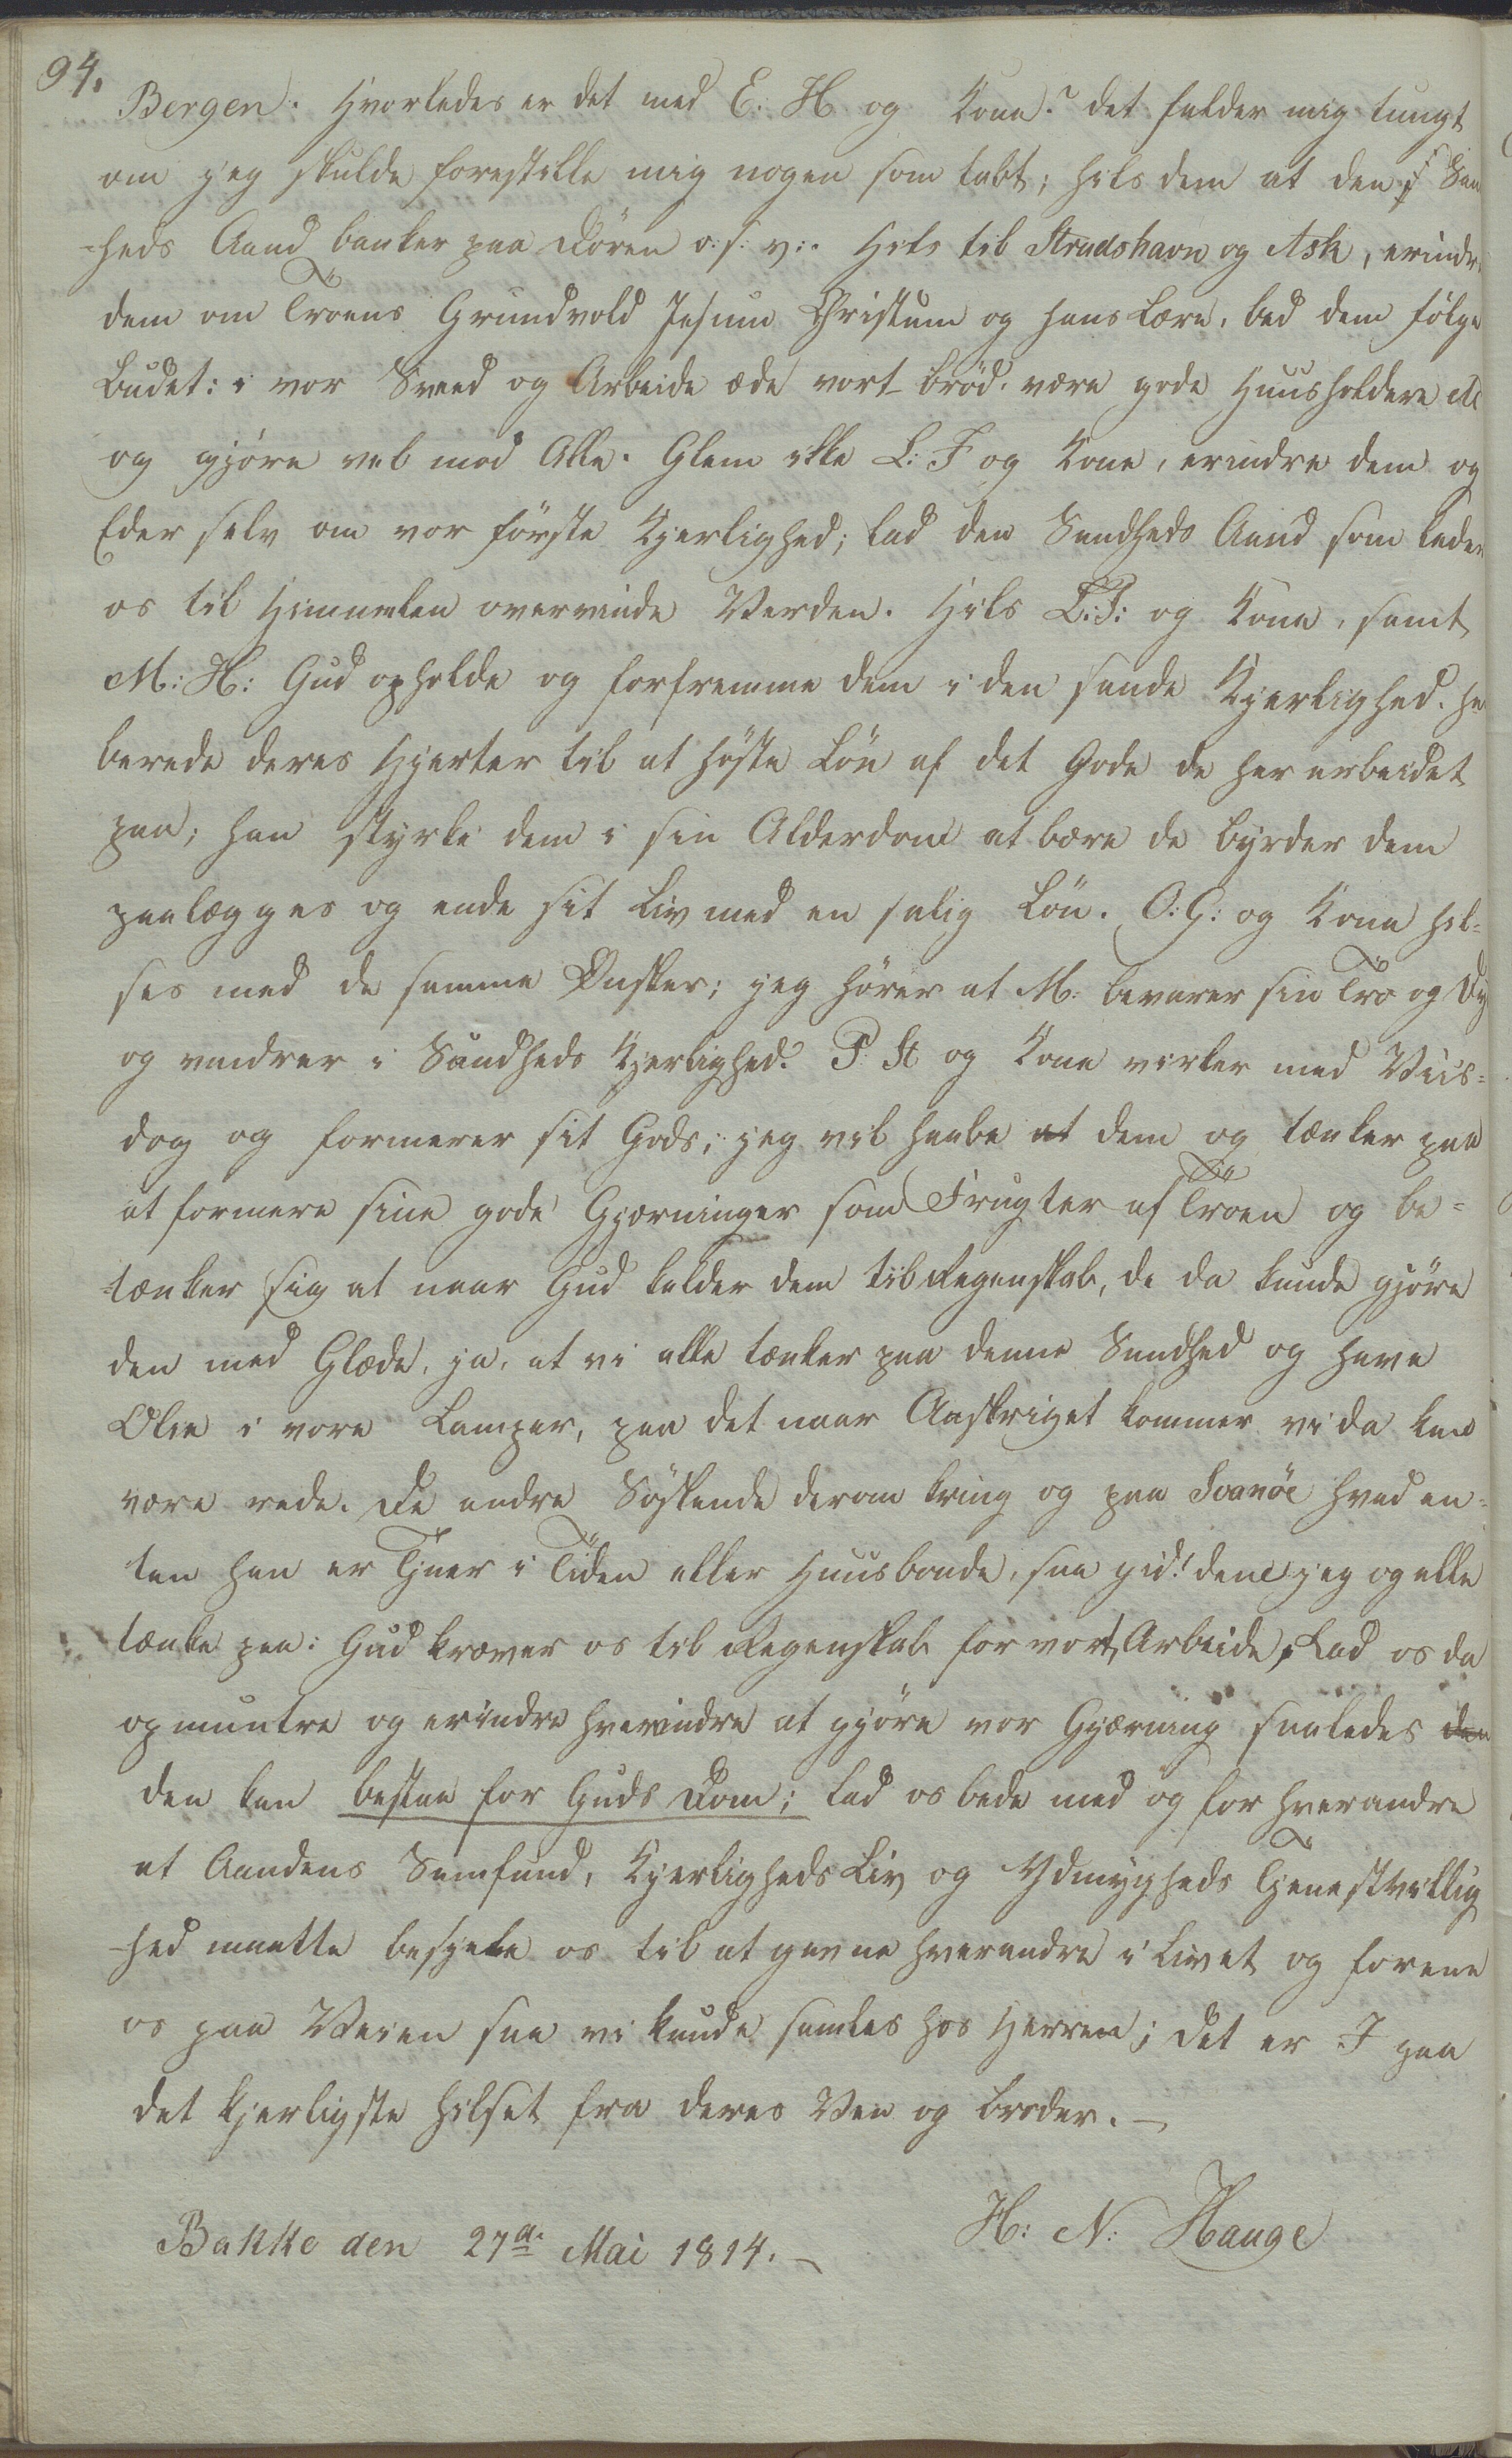 94.
Bergen. Hvorledes er det med E: H og Kone? det falder mig tungt
om jeg skulde forestille mig nogen som tabt; hils dem at den San
=heds Aand banker paa Døren o: s: v:. Hils til Strudshavn og Ask, erindre
dem om Troens Grundvold Jesum Christum og hans Lære, bed dem følge
Budet: i vor Sveed og Arbeide æde vort brød, være gode Huusholdere etc
og gjøre vel mod Alle. Glem ikke L: F og Kone, erindre dem og
Eder selv om vor første Kjerlighed; lad den Sandheds Aand som leder
os til Himmelen overvinde Verden. Hils L: F: og Kone, samt
M: H: Gud opholde og forfremme dem i den sande Kjerlighed. han
berede deres Hjerter til at høste Løn af det Gode de har arbeidet
paa; han styrke dem i sin Alderdom at bære de byrder dem
paalægges og ende sit Liv med en salig Løn. O: G: og Kone hil=
ses med de samme Ønsker; jeg hører at M: bevarer sin Tro og Dy
og vandrer i Sandheds Kjerlighed. P: St og Kone virker med Viis=
dog og formerer sit Gods; jeg vil haabe at dem og tænker paa
at formere sine gode Gjerninger som Frugter af Troen og be=
=tænker sig at naar Gud kalder dem til Regenskab, de da kunde gjøre
den med Glæde, ja, at vi alle tænker paa denne Sandhed og have
Olie i vore Lamper, paa det naar Anskriget kommer vi da kan
være rede. De andre Søskende derom kring og paa Svanøe hvad en=
ten han er Tjener i Tiden eller Huusbonde, saa gid! den jeg og alle
tænke paa: Gud kræver os til Regenskab for vort Arbeide, Lad os da
opmuntre og erindre hverandre at gjøre vor Gjerning saaledes den
den kan bestaae for Guds Dom; lad os bede med og for hverandre
at Aandens Samfund, Kjerligheds Liv og Ydmygheds Tjenestvillig
=hed maatte besjele os til at gavne hverandre i Livet og forene
os paa Veien saa vi kunde samles hos Herren; det er I paa
det kjerligste hilset fra deres Ven og broder.—
H: N: Hauge
Bakke den 27de Mai 1814.—